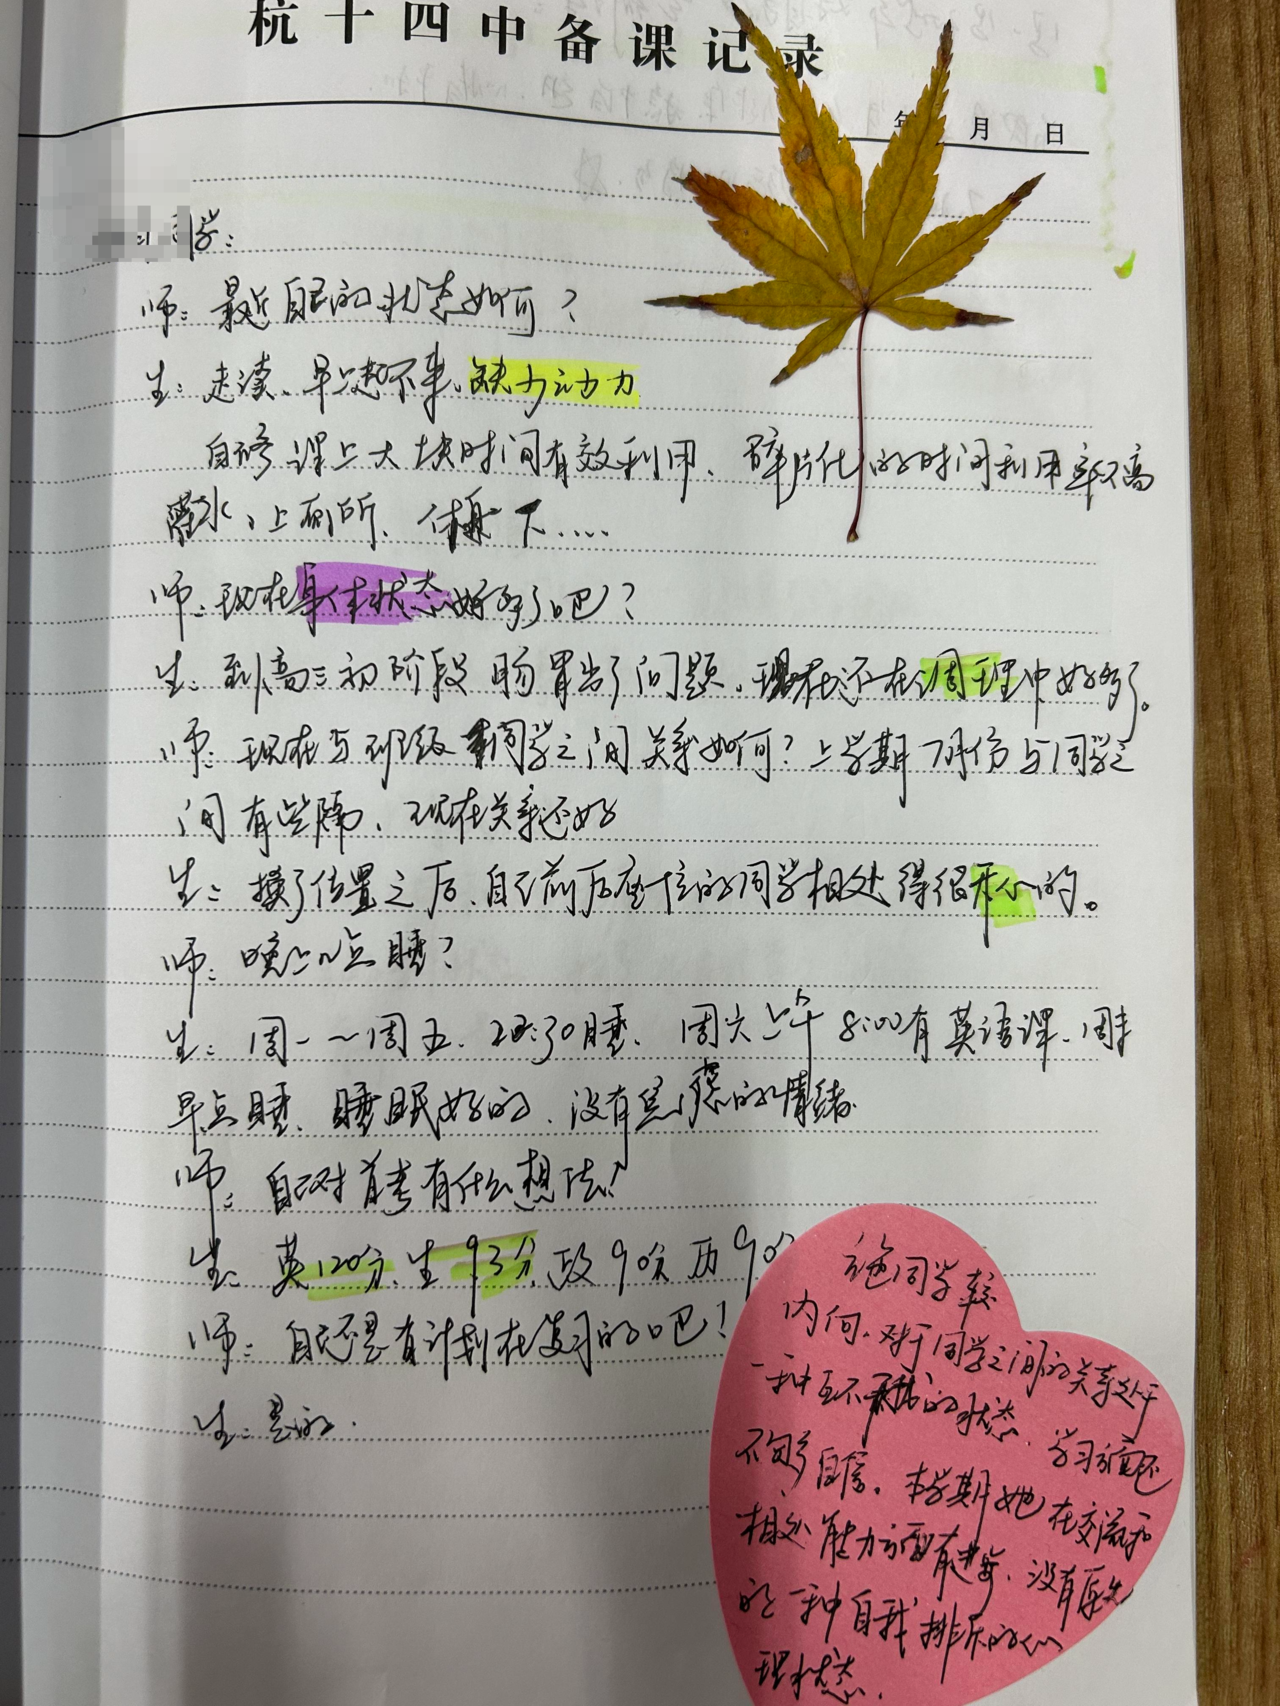 杭十四中备课记录
年 月 日
同学:
师: 最近自己的状态如何?
生: 走读、早上起不来、缺乏动力
自修课上大块时间有效利用、碎片化的时间利用率不高
灌水、上厕所、休息下....
师: 现在身体状态好多了吧?
生: 到高三初阶段肠胃出了问题、现在还在调理中好多了。
师: 现在与班级同学之间关系如何? 上学期7月份与同学之
间有些隔、现在关系还好
生: 换了位置之后、自己前后座位的同学相处得很开心的。
师: 晚上几点睡?
生: 周一~周五、22:30睡、周六上午8:00有英语课、周末
早点睡、睡眠好的、没有焦虑的情绪
师: 自己对首考有什么想法?
生: 英120分、生93分、政90分 历90分
师: 自己还是有计划在复习的吧?
生: 是的.
同学较
内向、对于同学之间的关系处于
一种互不的状态、学习方面还
不够自信、本学期她在交流和
相处能力方面有进步、没有原先
的一种自我排斥的心
理状态.